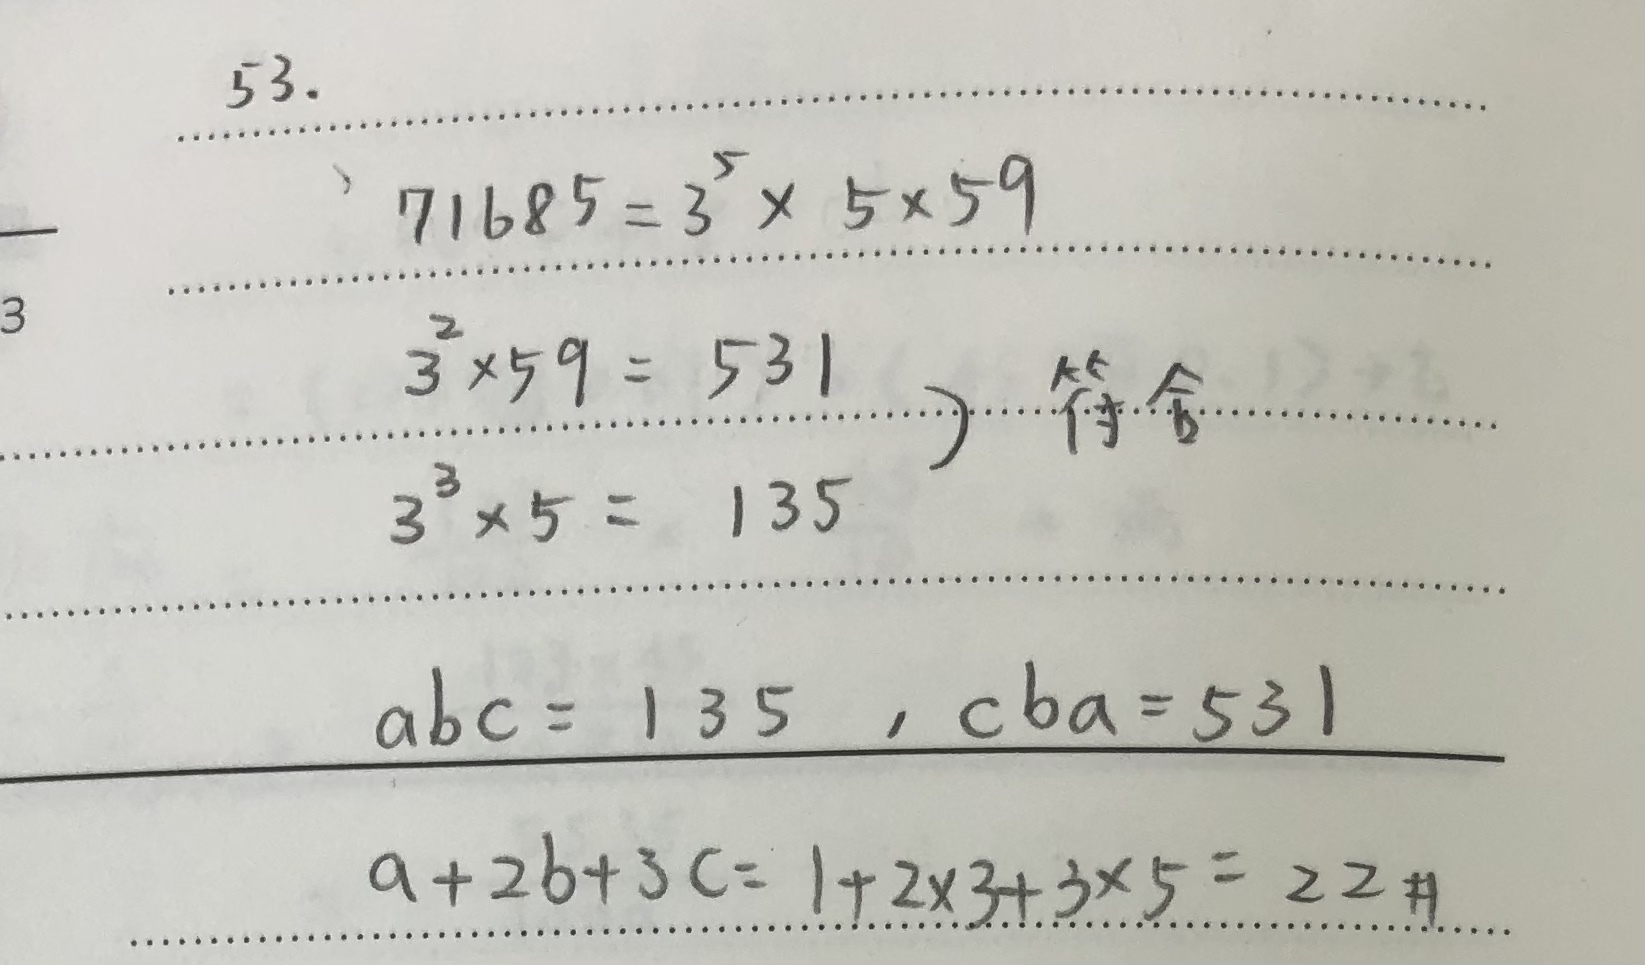 53.
71685=3⁵×5×59
3
3²×59=531
符合
3³×5=135
abc=135,cba=531
a+2b+3c=1+2×3+3×5=22#